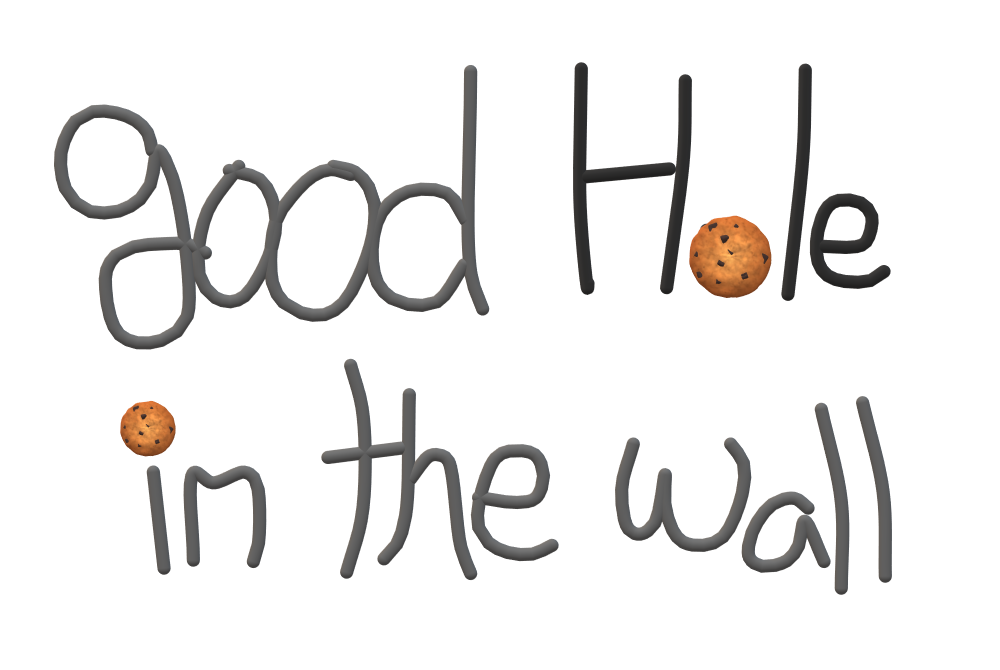 good Hole
in the wall